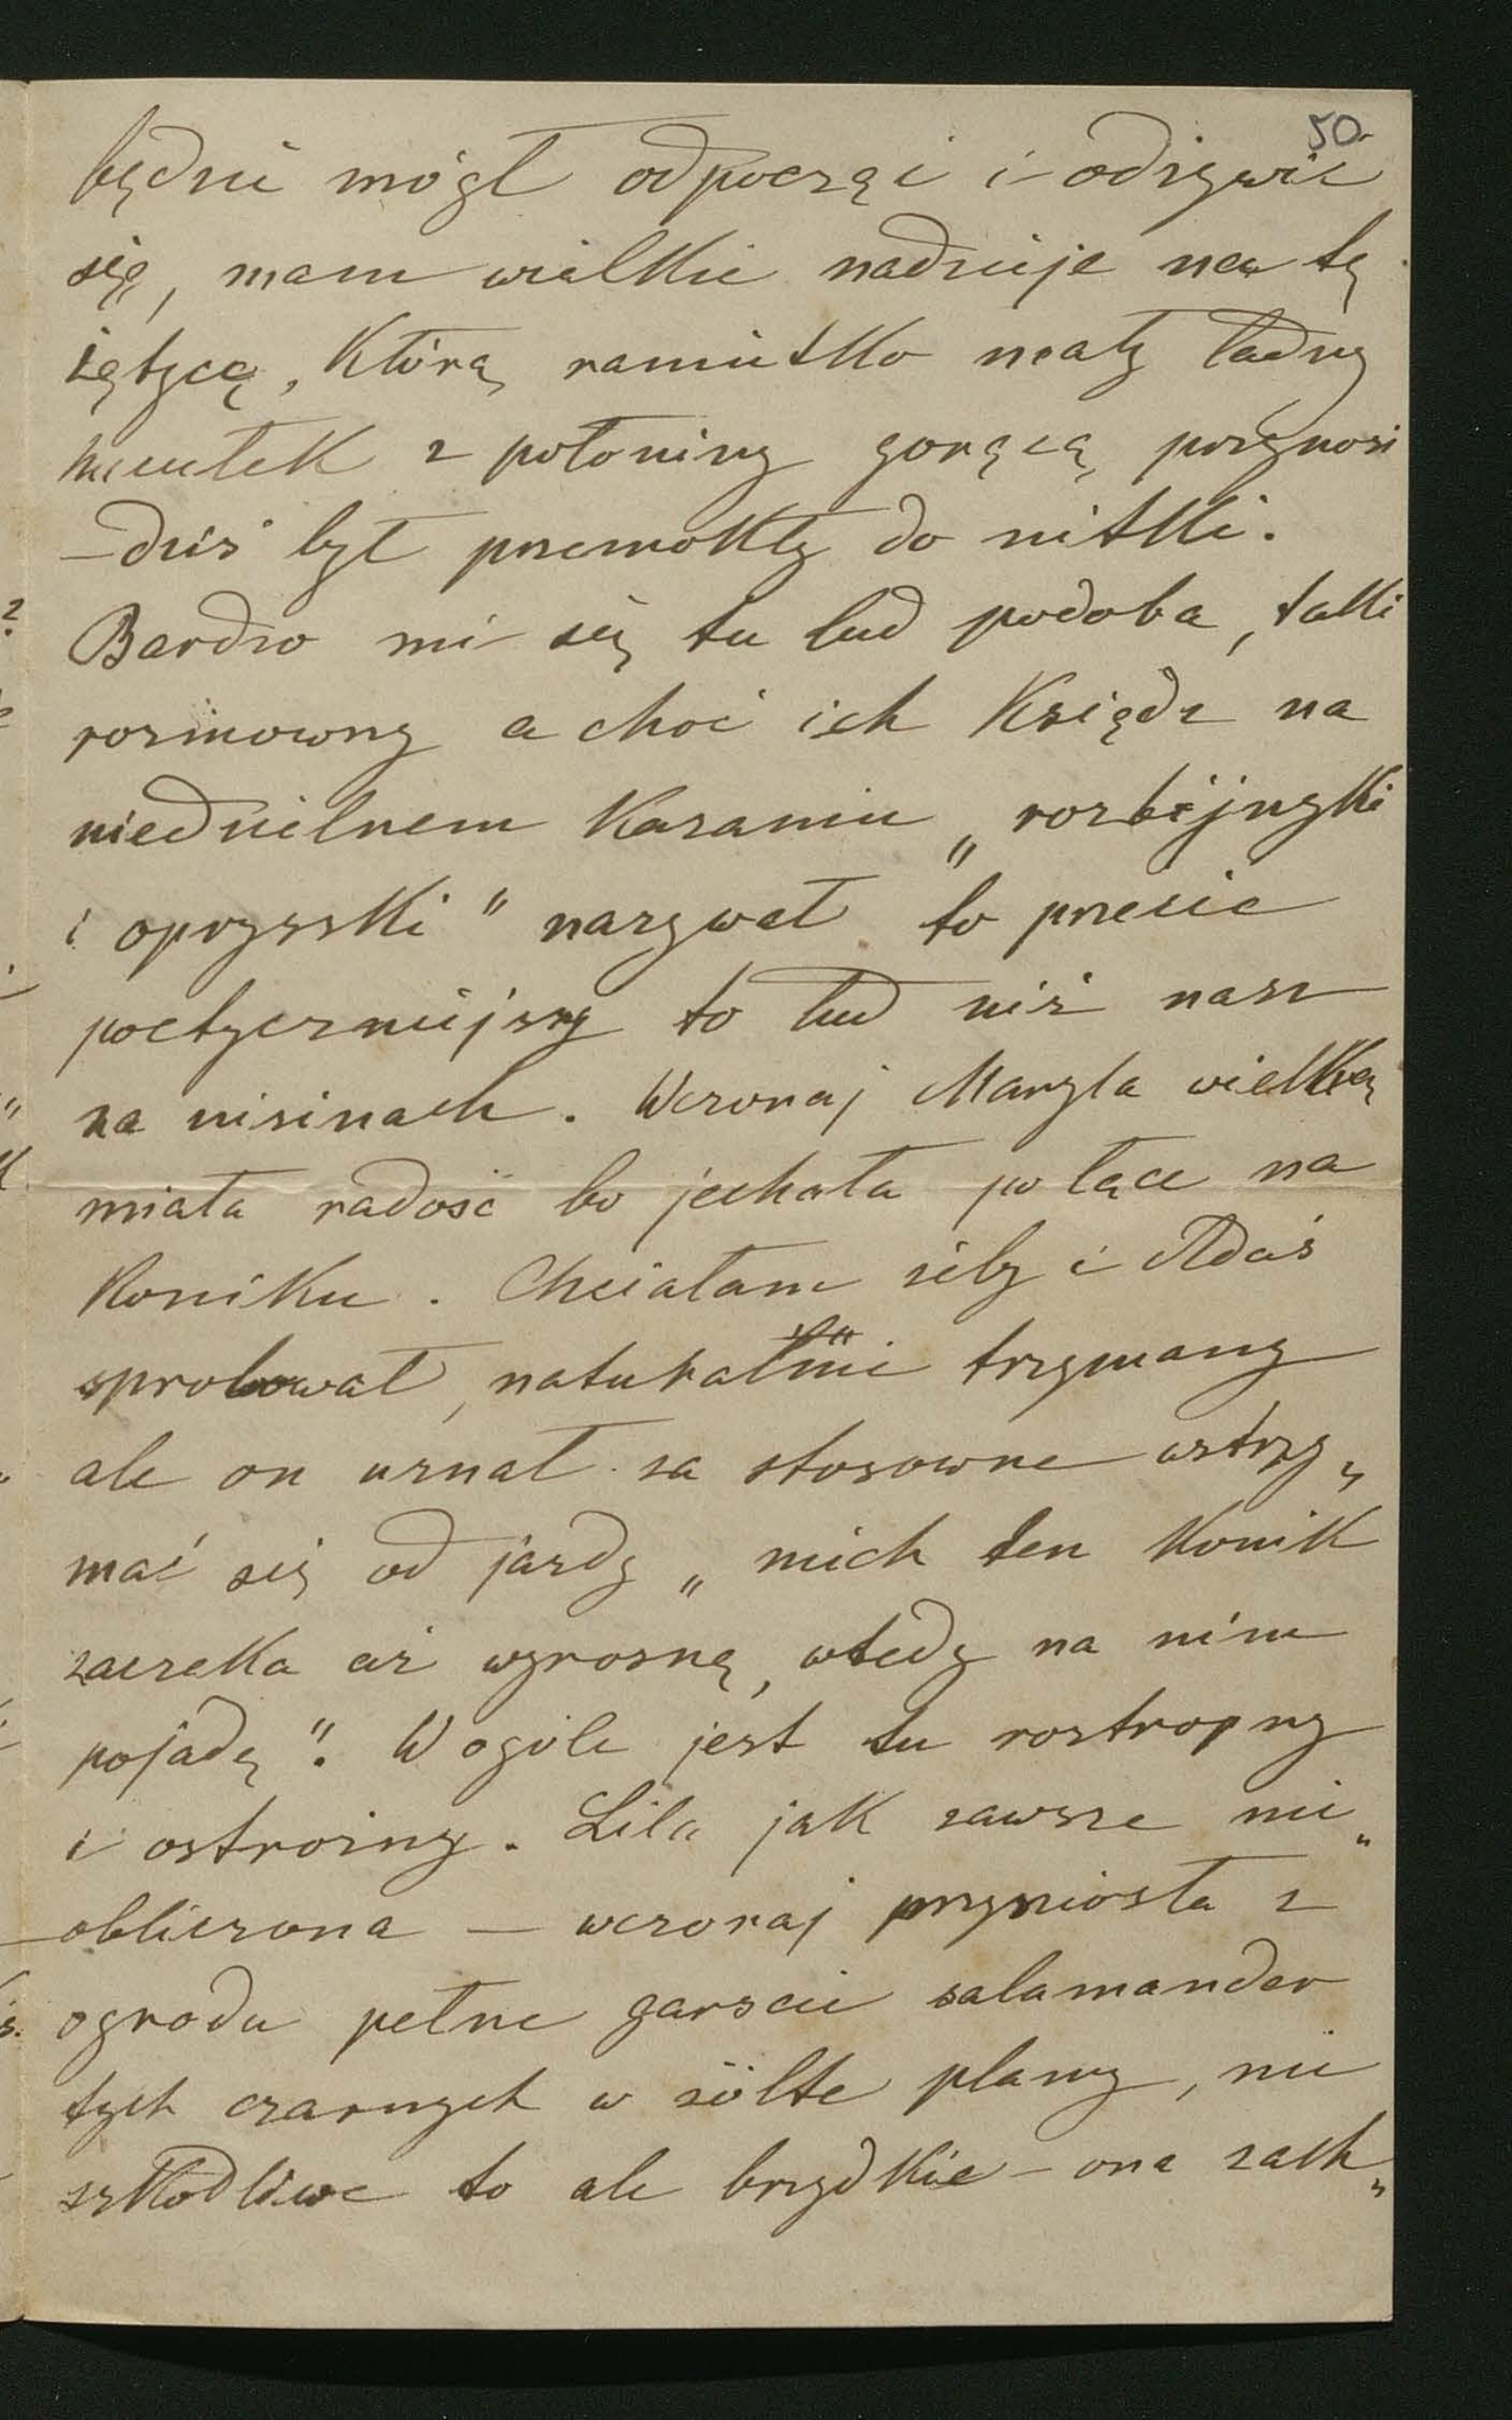 50.
będzie mógł odpocząć i odżywić
się, mam wielkie nadzieje na tę
żętycę, którą raniutko mały ładny
hucułek z połoniny gorącą przynosi
– dziś był przemokły do nitki.
Bardzo mi się tu lud podoba, taki
rozmowny a choć ich Ksiądz na
niedzielnem Kazaniu „rozbijnyki
i opryszki" nazywał to przecie
poetyczniejszy to lud niż nasz
na nizinach. Wczoraj Maryla wielką
miała radość bo jechała po łące na
Koniku. Chciałam żeby i Adaś
sprobował, naturalnie trzymany
ale on uznał za stosowne wstrzy„
mać się od jazdy „niech ten Konik
zaczeka aż wyrosnę, wtedy na nim
pojadę". W ogóle jest tu roztropny
i ostrożny. Lila jak zawsze nie„
obliczona — wczoraj przyniosła z
ogrodu pełne garście salamander
tych czarnych w żółte plamy, nie
szkodliwe to ale brzydkie – ona zach„